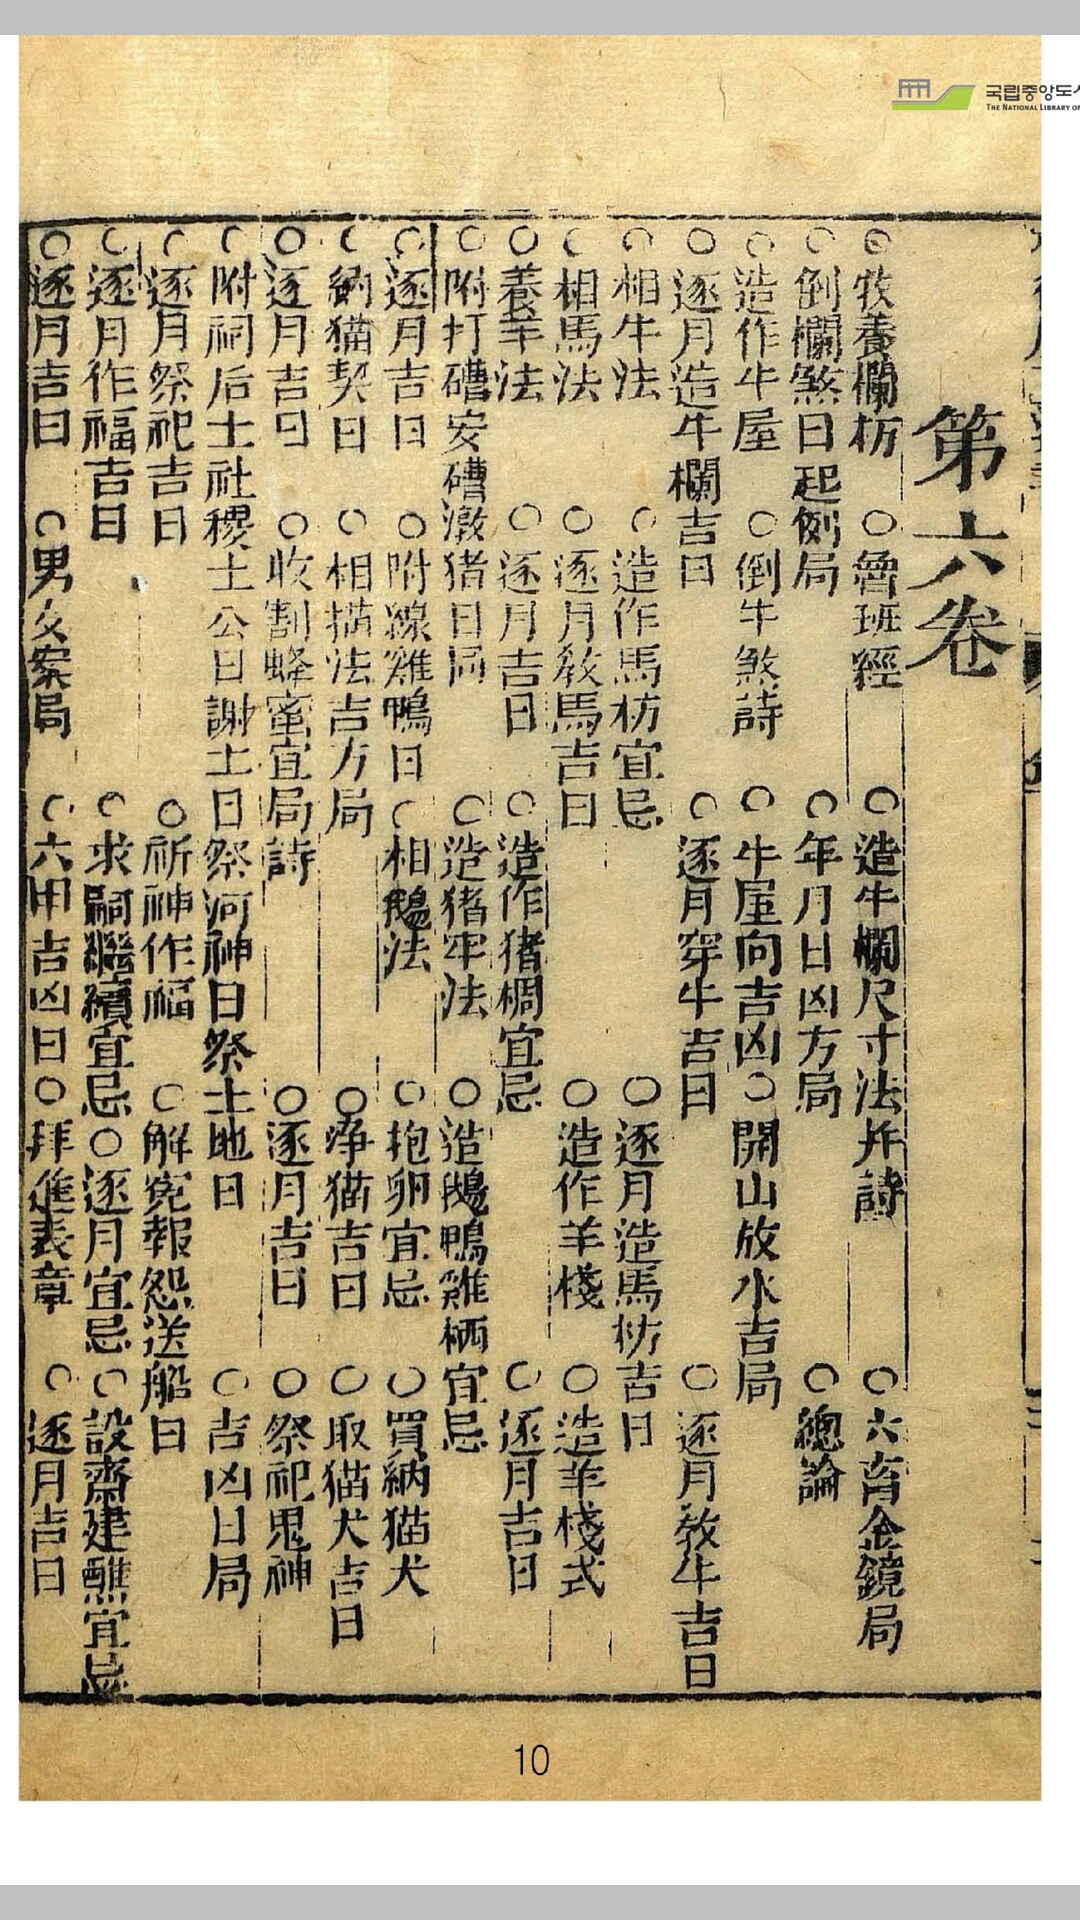 국립중앙도서
THE NATIONAL LIBRARY OF
第六卷
○牧養欄枋○魯班經○造牛欄尺寸法并詩○六畜金鏡局
○倒欄煞日起例局○年月日凶方局○總論
○造作牛屋○倒牛煞詩○牛屋向吉凶○開山放水吉局
○逐月造牛欄吉日○逐月穿牛吉日○逐月教牛吉日
○相牛法○造作馬枋宜忌○逐月造馬枋吉日
○相馬法○逐月教馬吉日○造作羊棧○造羊棧式
○養羊法○逐月吉日○造作猪椆宜忌○逐月吉日
○附打磆安磆激猪日局○造猪牢法○造鵝鴨雞栖宜忌
○逐月吉日○附線雞鴨日○相鵝法○抱卵宜忌○買納猫犬
○納猫契日○相猫法吉方局○淨猫吉日○取猫犬吉日
○逐月吉日○收割蜂蜜宜局詩○逐月吉日○祭祀鬼神
○附祠后土社稷土公日謝土日祭河神日祭土地日○吉凶日局
○逐月祭祀吉日○祈神作福○解冤報怨送船日
○逐月作福吉日○求嗣繼續宜忌○逐月宜忌○設齋建醮宜忌
○逐月吉日○男女案局○六甲吉凶日○拜進表章○逐月吉日
10